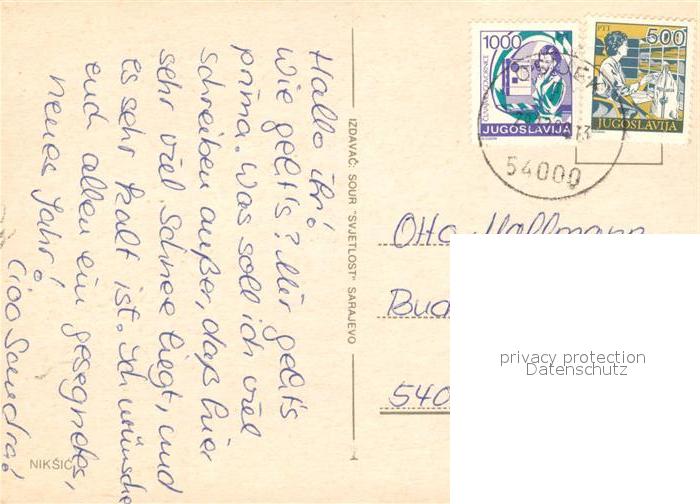 Hallo ihr!
Wie geht's? Mir geht's
prima. Was soll ich viel
schreiben außer, daß hier
sehr viel Schnee liegt, und
es sehr kalt ist. Ich wünsche
euch allen ein gesegnetes,
neues Jahr!
Ciao Sandra!
NIKŠIĆ
IZDAVAČ: SOUR "SVJETLOST" SARAJEVO
1000
JUGOSLAVIJA
PTT
500
JUGOSLAVIJA
54000
Otto
Bud
540
privacy protection
Datenschutz